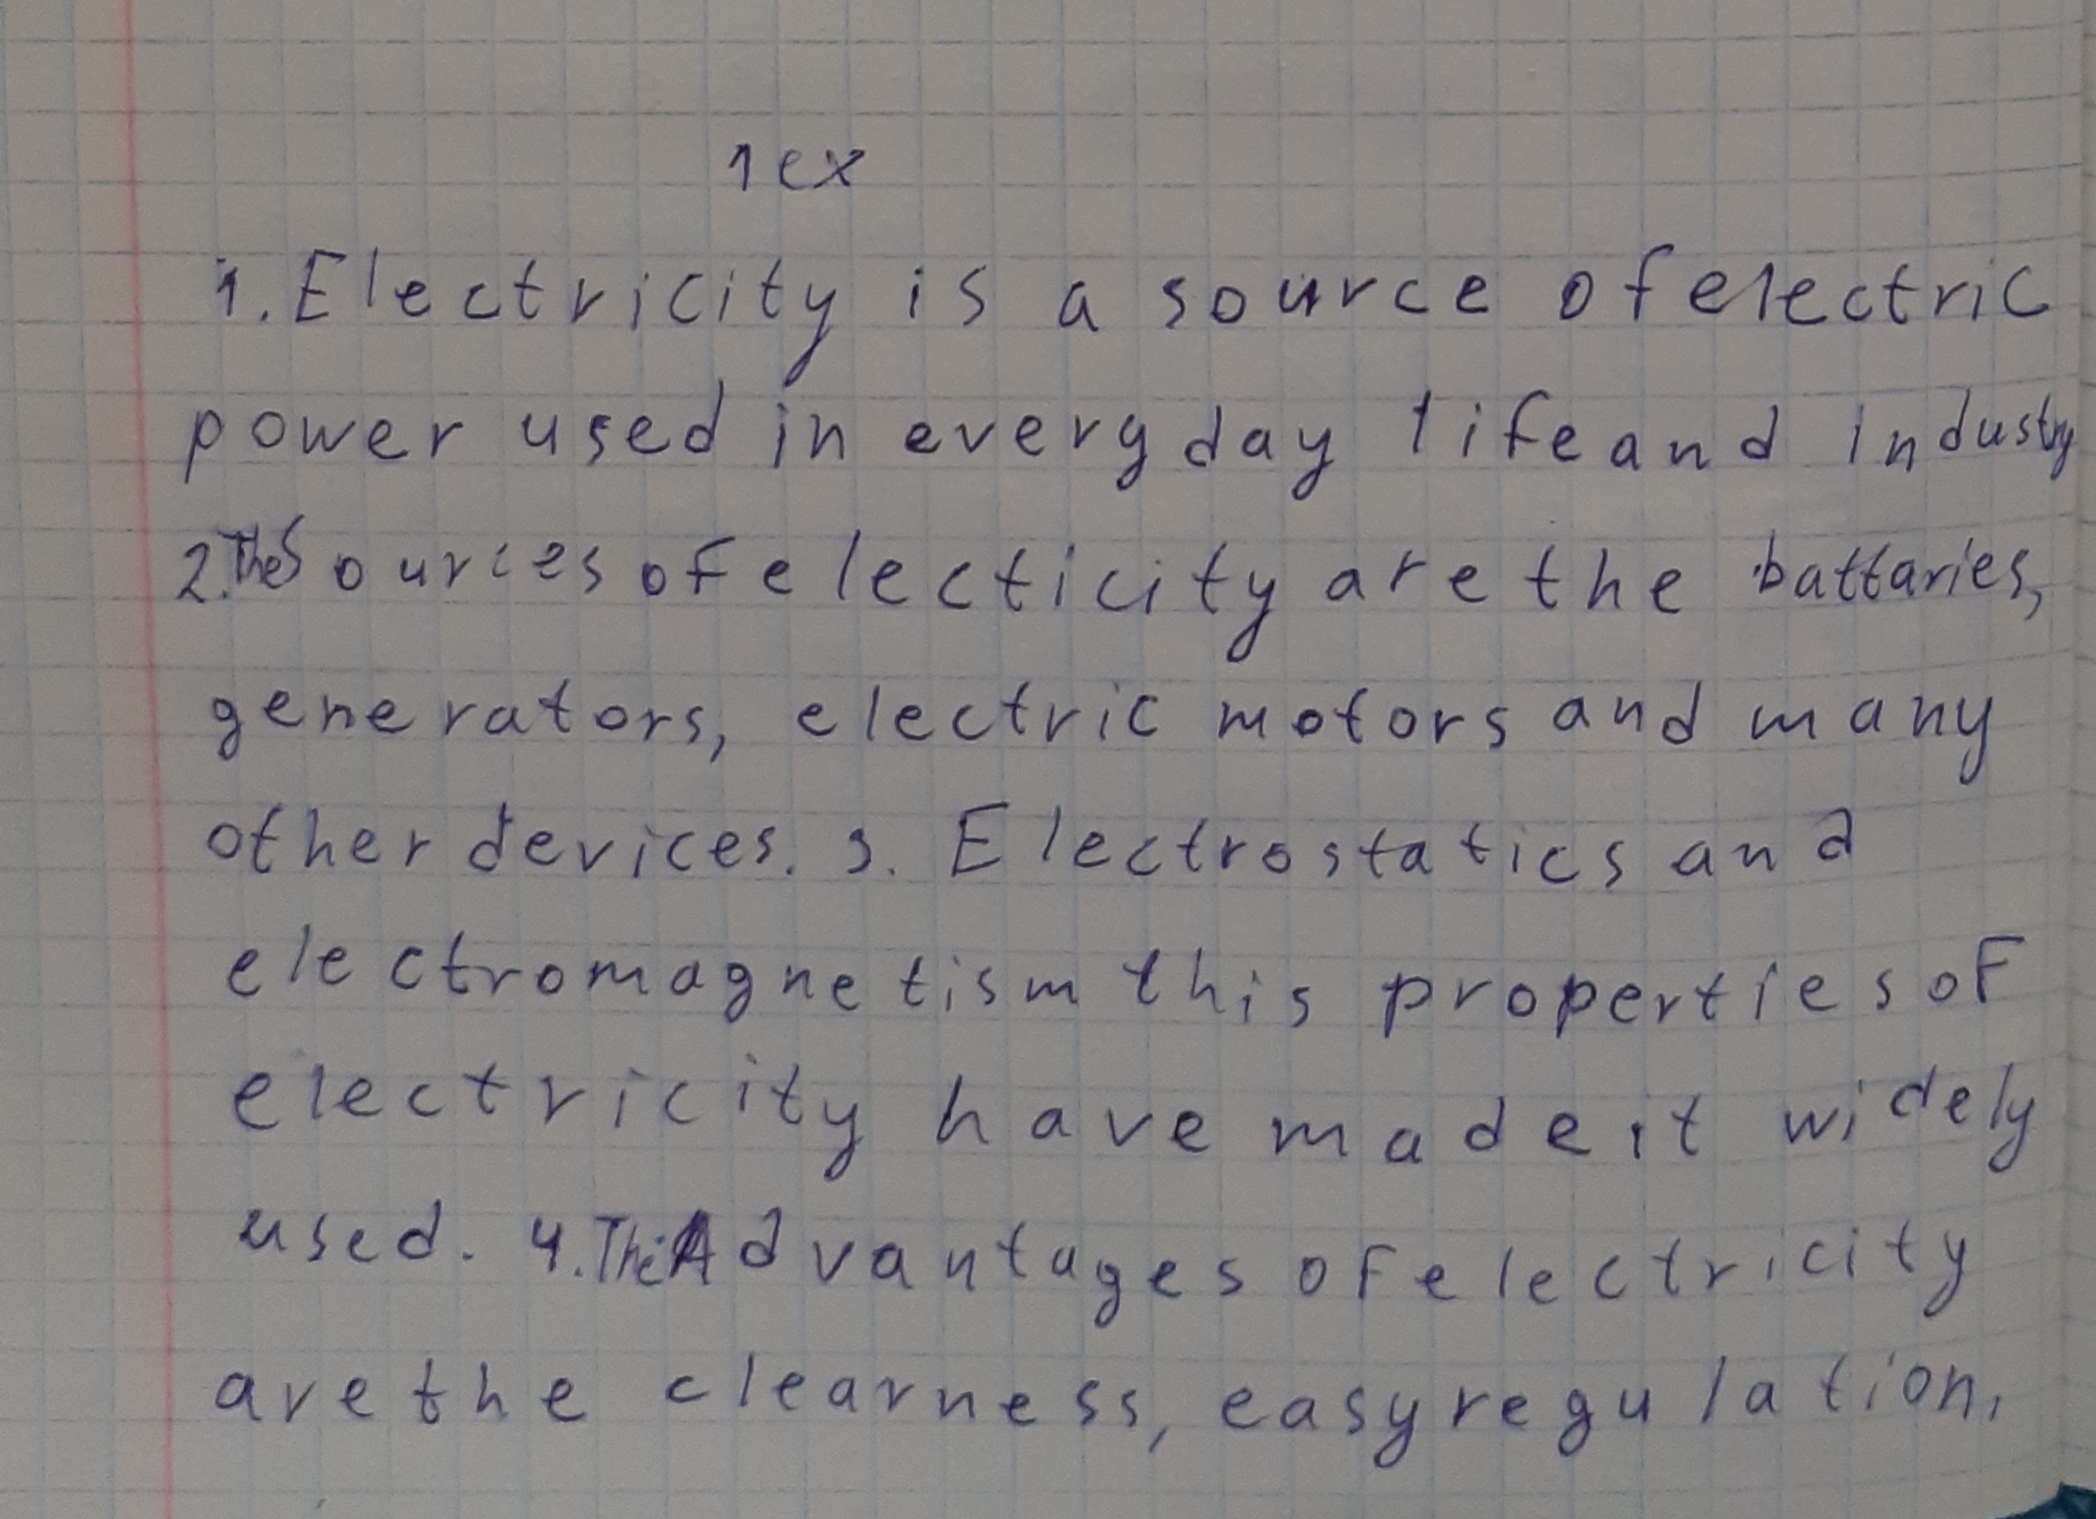 1 ex
1. Electricity is a source of electric
power used in every day life and industry
2. The Sources of electicity are the battaries,
generators, electric motors and many
other devices. 3. Electrostatics and
electromagnetism this properties of
electricity have made it widely
used. 4. The Advantages of electricity
are the clearness, easy regulation,